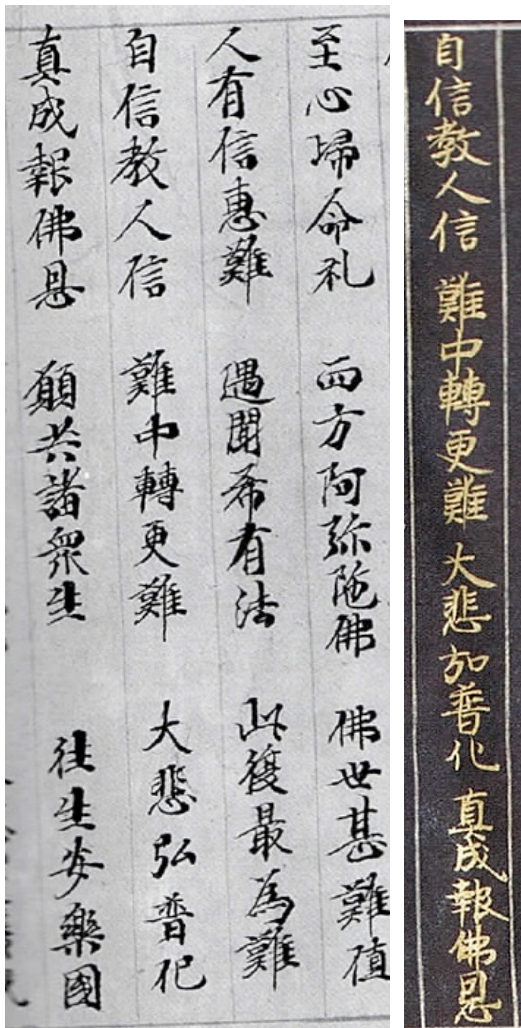 至心帰命礼 西方阿弥陁佛 佛世甚難值
人有信惠難 遇聞希有法 此復最為難
自信教人信 難中轉更難 大悲弘普化
真成報佛恩 願共諸衆生 往生安樂國
自信教人信 難中轉更難 大悲加普化 真成報佛恩